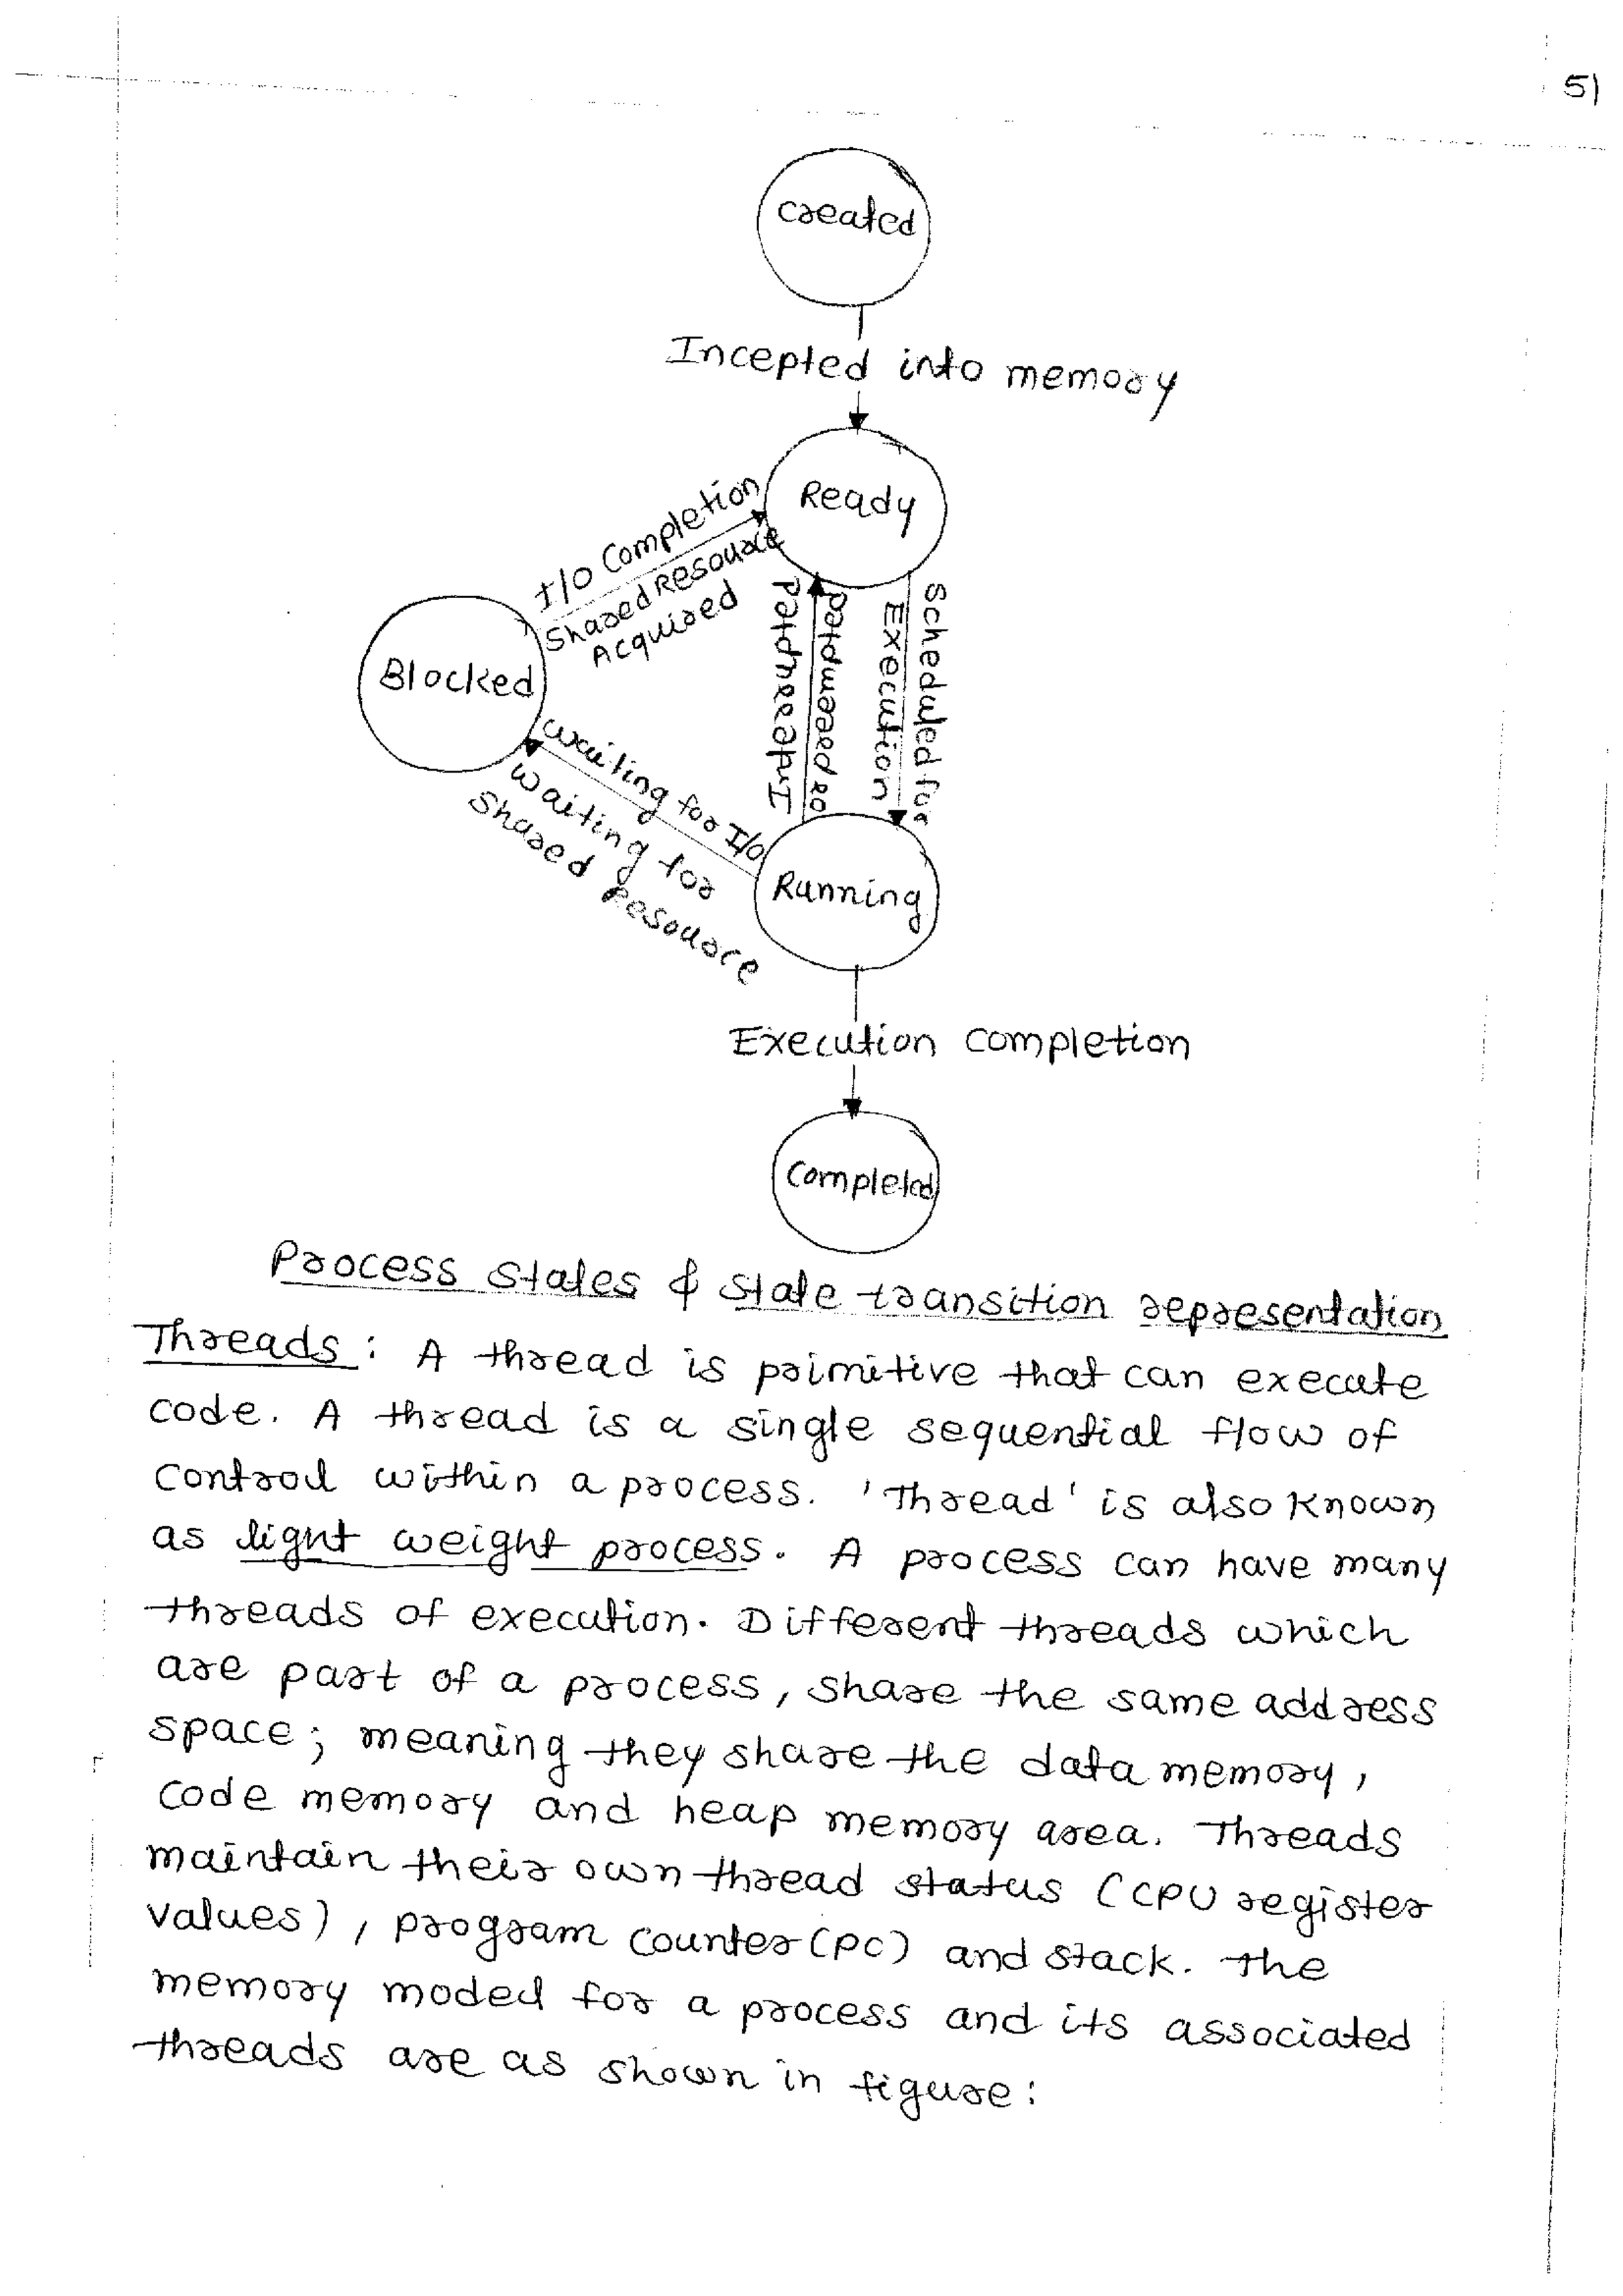 51
Created
Incepted into memory
Ready
I/O Completion
Shared Resource
Acquired
Interrupted
or preempted
Execution
Scheduled for
Blocked
Waiting for I/O
Waiting for
Shared Resource
Running
Execution Completion
Completed
Process States & State transition representation
Threads: A thread is primitive that can execute
code. A thread is a single sequential flow of
control within a process. 'Thread' is also known
as light weight process. A process can have many
threads of execution. Different threads which
are part of a process, share the same address
space; meaning they share the data memory,
code memory and heap memory area. Threads
maintain their own thread status (CPU register
values), program counter (PC) and stack. The
memory model for a process and its associated
threads are as shown in figure: